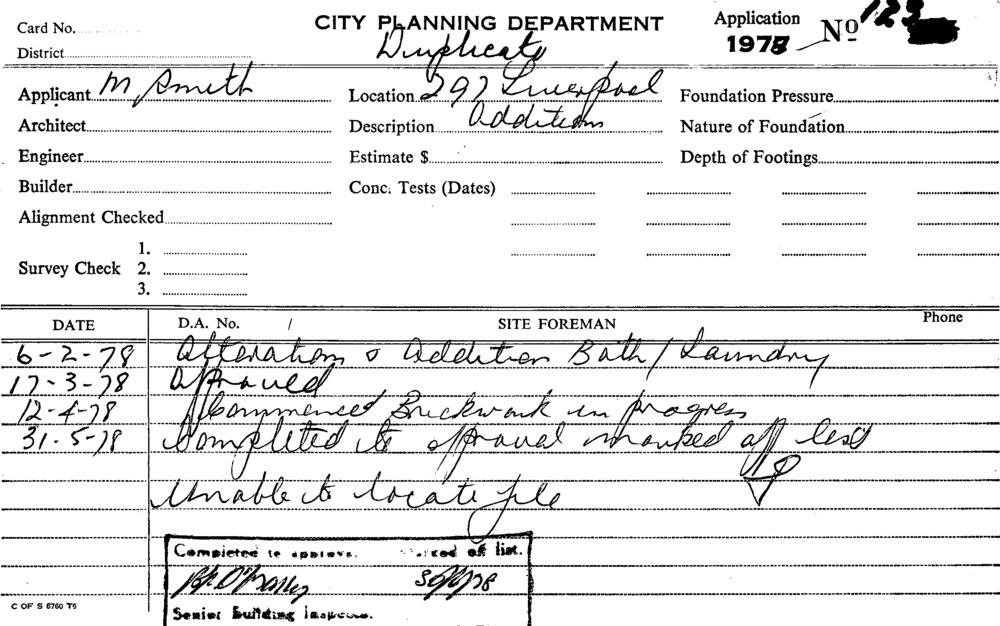 Card No.
CITY PLANNING DEPARTMENT
Application
1978
No 123
District
Duplicate
Applicant M Smith
Location 297 Liverpool
Foundation Pressure
Architect
Description Addition
Nature of Foundation
Engineer
Estimate $
Depth of Footings
Builder
Conc. Tests (Dates)
Alignment Checked
1.
Survey Check 2.
3.
DATE D.A. No. / SITE FOREMAN Phone
6-2-78 Alterations & Addition Bath/Laundry
17-3-78 Approved
12-4-78 Commenced Brickwork in progress
31-5-78 Completed to approval marked off list
Unable to locate file
Completed to approva. off list.
Senior Building Inspector.
C OF S 6760 T6